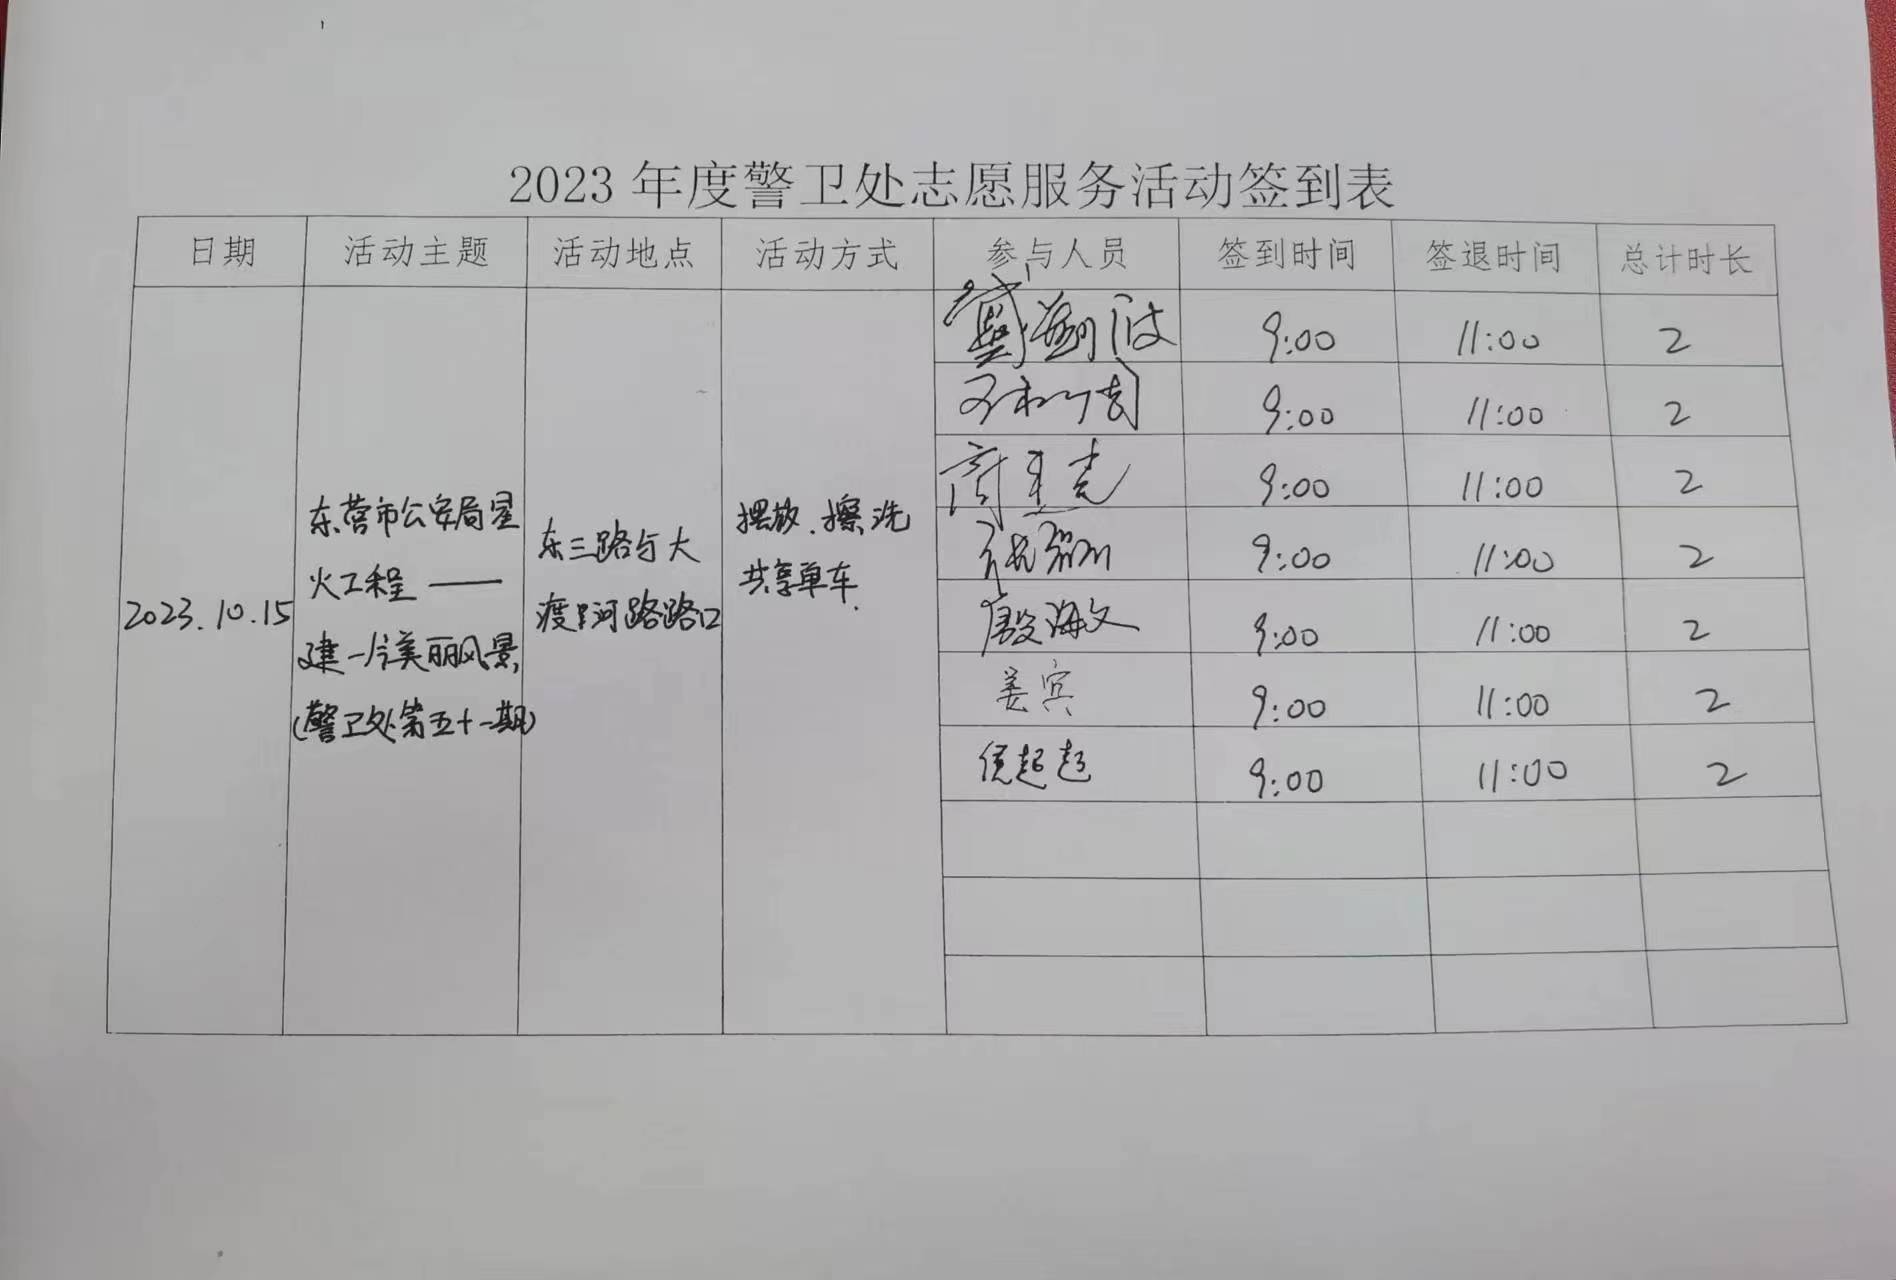 2023年度警卫处志愿服务活动签到表
日期 活动主题 活动地点 活动方式 参与人员 签到时间 签退时间 总计时长
2023.10.15
东营市公安局星
火工程——
建一片美丽风景
(警卫处第五十一期)
东三路与大
渡河路路口
摆放、擦洗
共享单车.
9:00 11:00 2
9:00 11:00 2
9:00 11:00 2
9:00 11:00 2
殷海文 9:00 11:00 2
姜宾 9:00 11:00 2
侯起超 9:00 11:00 2